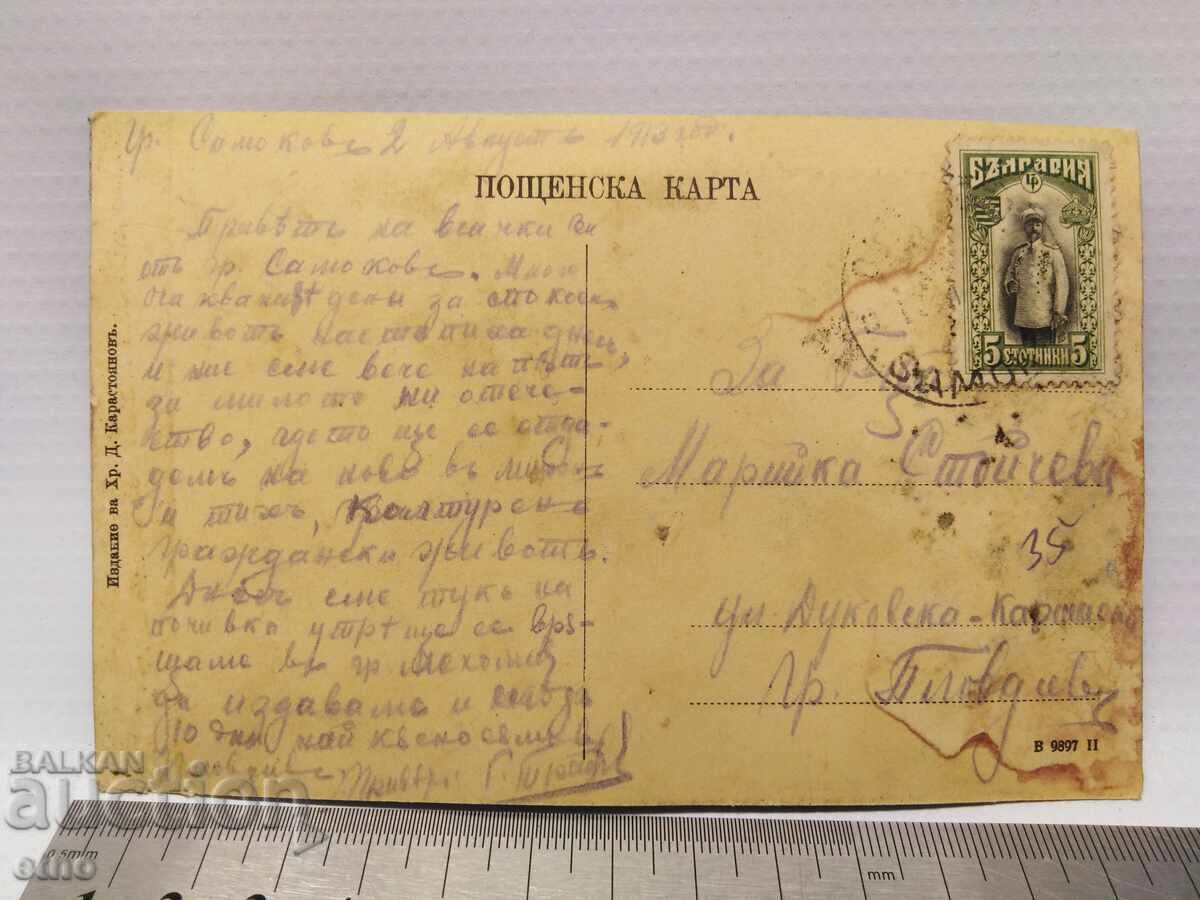 гр. Самоковъ 2 Августъ 1913 год.
ПОЩЕНСКА КАРТА
БЪЛГАРИЯ
5 СТОТИНКИ 5
Привѣтъ на всички Ви
отъ гр. Самоковъ. Много
дни за спокоенъ
животъ настѫпиха днесъ,
и ние сме вече на пѫть
за милото ни отече-
ство, гдето ще се отда-
демъ на ново въ
и тихъ, културенъ
граждански животъ.
Днесъ сме тукъ на
почивка утрѣ ще се врѣ-
щаме въ гр.
да издаваме и слѣдъ
10 дни най късно сме въ
Пловдивъ. Привѣтъ: Г.
Издание на Хр. Д. Карастояновъ.
За
Марийка Стойчева
35
ул Дуковска-
гр. Пловдивъ
В 9897 II
BALKAN
auction
etno
0,5mm
mm